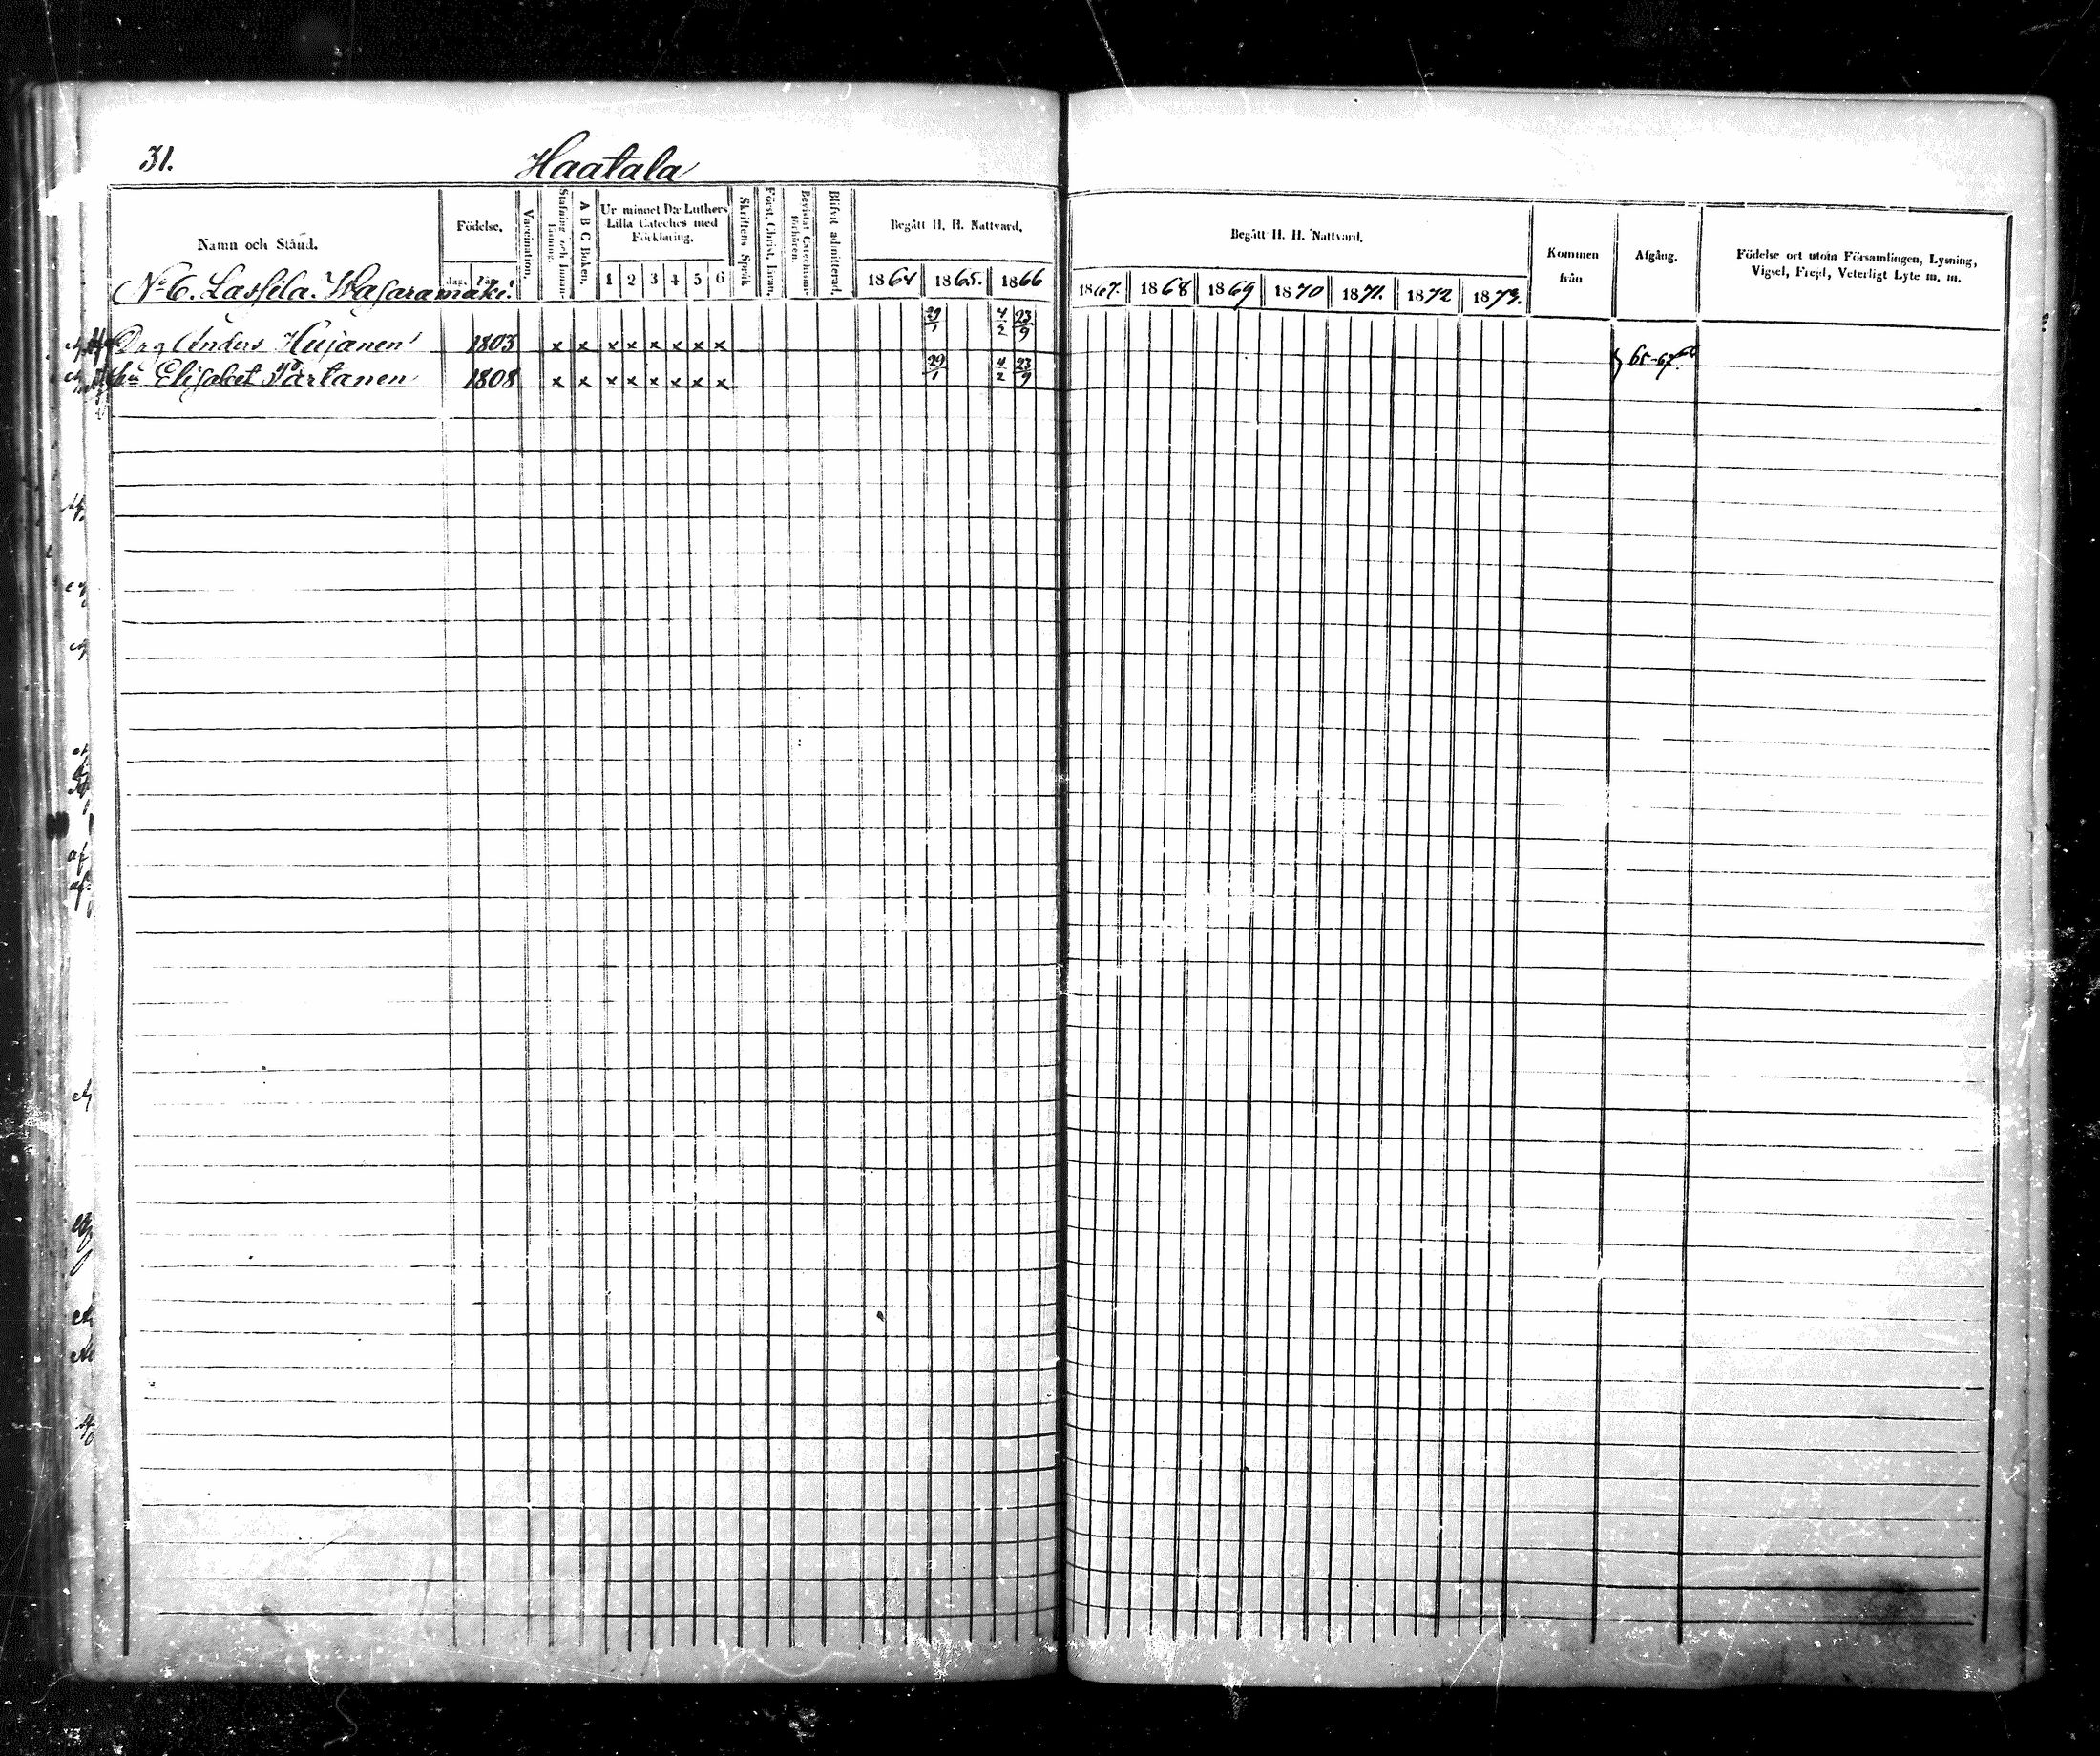 31.
Haatala
Namn och Stånd.
Födelse.
dag. år.
Vaccination.
Stafning och Innanläsning.
A B C Boken.
Ur minnet D:r Luthers Lilla Cateches med Förklaring.
1 2 3 4 5 6
Skriftens Språk
Först. Christ. Läran.
Bevistat Catechismiförhören.
Blifvit admitterad.
Begått H. H. Nattvard.
1864 1865. 1866
Begått H. H. Nattvard.
1867. 1868 1869 1870 1871. 1872 1873.
Kommen från
Afgång.
Födelse ort utom Församlingen, Lysning, Vigsel, Frejd, Veterligt Lyte m. m.
No 6. Lassila. Wasaramäki.
Anders Hujanen 1803 x x x x x x x x 29/1 4/2 23/9
Elisabet Partanen 1808 x x x x x x x x 29/1 4/2 23/9